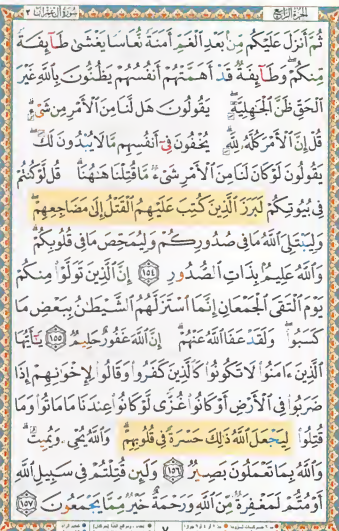 الجزء الرابع سورة آل عمران ٣
ثُمَّ أَنزَلَ عَلَيْكُم مِّنۢ بَعْدِ ٱلْغَمِّ أَمَنَةً نُّعَاسًا يَغْشَىٰ طَآئِفَةً
مِّنكُمْ ۖ وَطَآئِفَةٌ قَدْ أَهَمَّتْهُمْ أَنفُسُهُمْ يَظُنُّونَ بِٱللَّهِ غَيْرَ
ٱلْحَقِّ ظَنَّ ٱلْجَٰهِلِيَّةِ ۖ يَقُولُونَ هَل لَّنَا مِنَ ٱلْأَمْرِ مِن شَىْءٍ ۗ
قُلْ إِنَّ ٱلْأَمْرَ كُلَّهُۥ لِلَّهِ ۗ يُخْفُونَ فِىٓ أَنفُسِهِم مَّا لَا يُبْدُونَ لَكَ ۖ
يَقُولُونَ لَوْ كَانَ لَنَا مِنَ ٱلْأَمْرِ شَىْءٌ مَّا قُتِلْنَا هَٰهُنَا ۗ قُل لَّوْ كُنتُمْ
فِى بُيُوتِكُمْ لَبَرَزَ ٱلَّذِينَ كُتِبَ عَلَيْهِمُ ٱلْقَتْلُ إِلَىٰ مَضَاجِعِهِمْ ۖ
وَلِيَبْتَلِىَ ٱللَّهُ مَا فِى صُدُورِكُمْ وَلِيُمَحِّصَ مَا فِى قُلُوبِكُمْ ۗ
وَٱللَّهُ عَلِيمٌۢ بِذَاتِ ٱلصُّدُورِ ١٥٤ إِنَّ ٱلَّذِينَ تَوَلَّوْا۟ مِنكُمْ
يَوْمَ ٱلْتَقَى ٱلْجَمْعَانِ إِنَّمَا ٱسْتَزَلَّهُمُ ٱلشَّيْطَٰنُ بِبَعْضِ مَا
كَسَبُوا۟ ۖ وَلَقَدْ عَفَا ٱللَّهُ عَنْهُمْ ۗ إِنَّ ٱللَّهَ غَفُورٌ حَلِيمٌ ١٥٥ يَٰٓأَيُّهَا
ٱلَّذِينَ ءَامَنُوا۟ لَا تَكُونُوا۟ كَٱلَّذِينَ كَفَرُوا۟ وَقَالُوا۟ لِإِخْوَٰنِهِمْ إِذَا
ضَرَبُوا۟ فِى ٱلْأَرْضِ أَوْ كَانُوا۟ غُزًّى لَّوْ كَانُوا۟ عِندَنَا مَا مَاتُوا۟ وَمَا
قُتِلُوا۟ لِيَجْعَلَ ٱللَّهُ ذَٰلِكَ حَسْرَةً فِى قُلُوبِهِمْ ۗ وَٱللَّهُ يُحْىِۦ وَيُمِيتُ ۗ
وَٱللَّهُ بِمَا تَعْمَلُونَ بَصِيرٌ ١٥٦ وَلَئِن قُتِلْتُمْ فِى سَبِيلِ ٱللَّهِ
أَوْ مُتُّمْ لَمَغْفِرَةٌ مِّنَ ٱللَّهِ وَرَحْمَةٌ خَيْرٌ مِّمَّا يَجْمَعُونَ ١٥٧